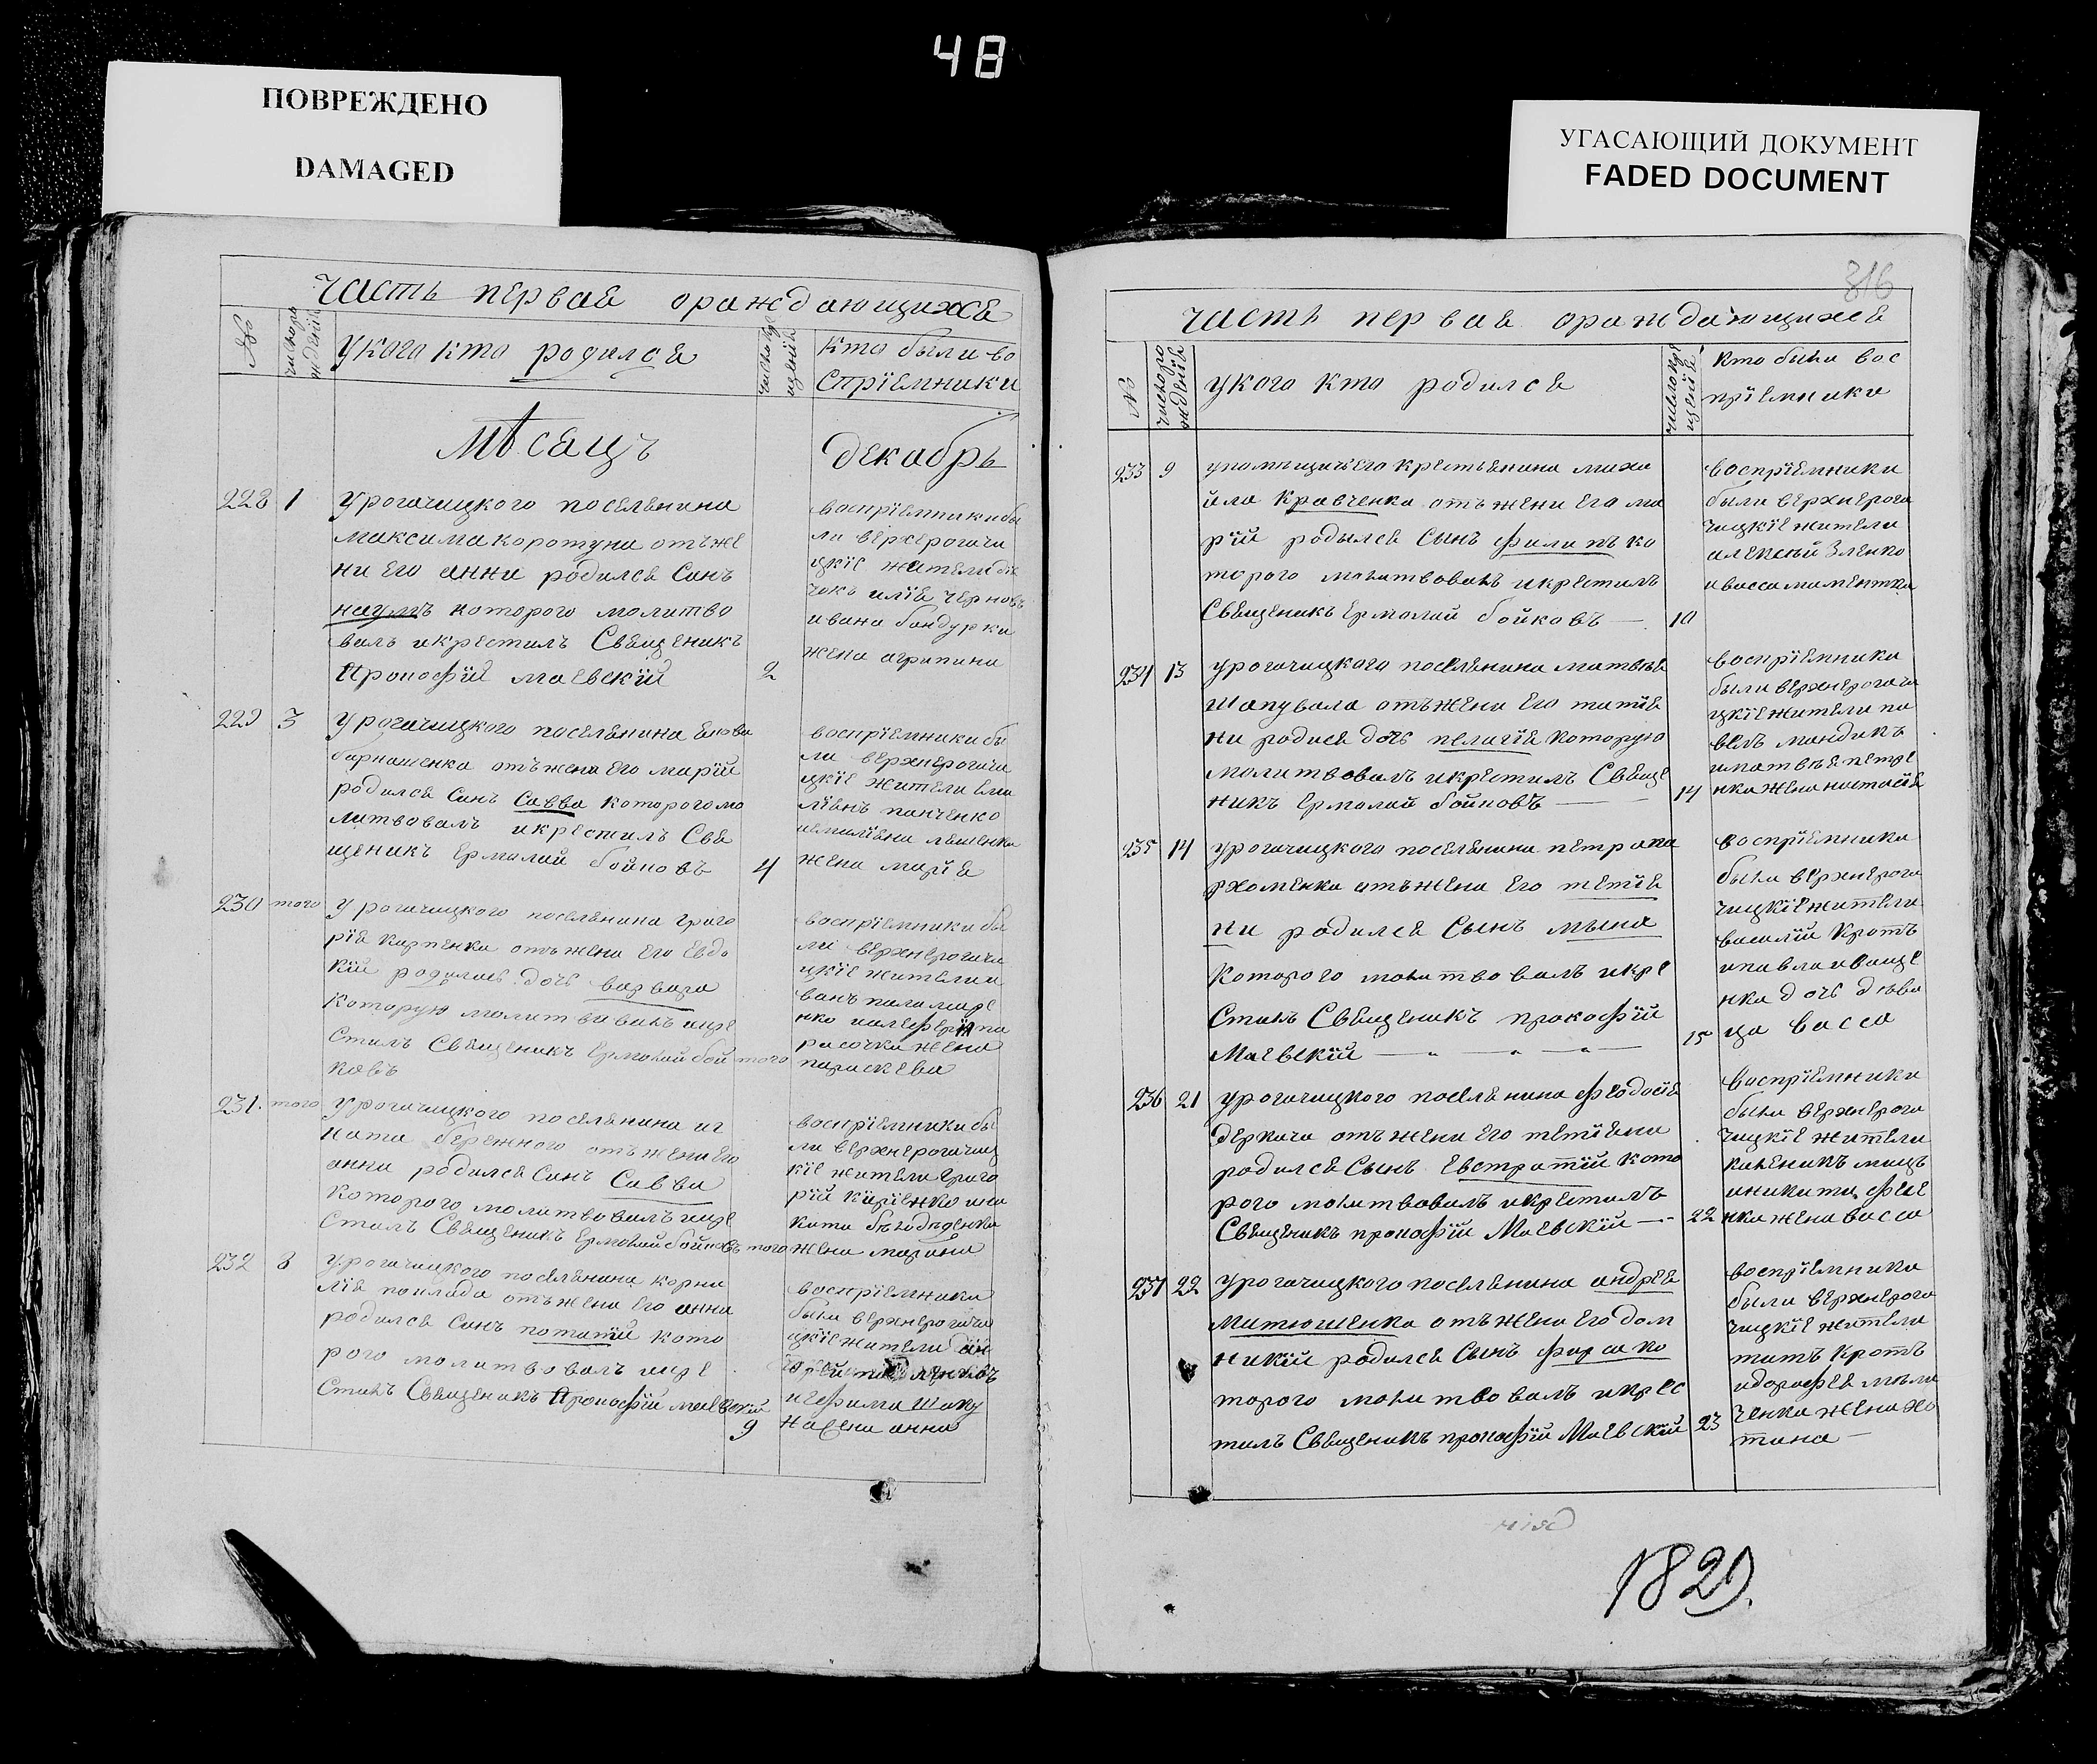 48
ПОВРЕЖДЕНО
DAMAGED
УГАСАЮЩИЙ ДОКУМЕНТ
FADED DOCUMENT
часть первая ораждающихся
№
укого кто родился
кто были во
спріемники
мѣсяцъ
декабрь
228 1
урогачицкого поселянина
максима коротуна отъже
ни его анни родился Синъ
наумъ которого молитво
валъ икрестилъ Священикъ
Прокофій маевскій
2
воспріемники бы
ли верхерогачи
цкіе жители
илія черновъ
ивана бандурки
жена агрипина
229 3
урогачицкого поселянина
отъжени его марій
родился Синъ Савва которогомо
литвовалъ икрестилъ Свя
щеникъ Ермолай бойковъ
4
воспріемники бы
ли верхнерогачи
цкіе жители еми
ліянъ панченко
жена марія
230 того
урогачицкого поселянина григо
рія карпенка отъжени его евдо
кій родилась дочь варвара
которую молитвовалъ икре
стилъ Священикъ Ермолай бой
ковъ
того
воспріемники бы
ли верхнерогачи
цкіе жители и
ванъ паламаре
нко
жена
параскева
231. того
урогачицкого поселянина иг
ната бережного отъжени его
анни родился Синъ Савва
которого молитвовалъ икре
стилъ Священикъ Ермолай бойковъ
того
воспріемники бы
ли верхнерогачиц
кіе жители григо
рій
жена марина
232 8
урогачицкого поселянина корни
лія поклада отъжени его анни
родился Синъ потапій кото
рого молитвовалъ икре
стилъ Священикъ Прокофій маевскій
9
воспріемники
были верхнерогачи
цкіе жители
иефима шапу
анна
316
часть первая ораждающихся
№
укого кто родился
кто были вос
пріемники
233 9
упомещичьего крестьянина миха
йла Кравченка отъжени его ма
рій родылся Сынъ филипъ ко
торого молитвовалъ икрестилъ
Священикъ Ермолай бойковъ —
10
воспріемники
были верхнерога
чицкіе жители
алексѣй Зленко
234 13
урогачицкого поселянина матвѣя
шаповала отъжени его татія
ни родися дочь пелагія которую
молитвовалъ икрестилъ Свяще
никъ Ермолай бойковъ —
14
воспріемники
были верхнерогачи
цкіе жители па
велъ мандикъ
иматвѣя петре
нка жена настасія
235 14
урогачицкого поселянина петра па
рхоменка отъжени его тетія
ни родился Сынъ мына
Которого молитвовалъ икре
стилъ Священикъ прокофій
Маевскій —
15
воспріемники
были верхнерога
чицкіе жители
василій Кротъ
ипавла иваще
нка дочь дѣви
ца васса
236 21
урогачицкого поселянина феодосія
деркача отъжени его тетіяни
родился Сынъ Евстратій кото
рого молитвовалъ икрестилъ
Священикъ прокофій Маевскій —
22
воспріемники
были верхнерога
чицкіе жители
нка жена васса
237 22
урогачицкого поселянина андрея
Митюшенка отъжени его дом
никій родился Сынъ фирса ко
торого молитвовалъ икрес
тилъ Священикъ прокофій Маевскій
23
воспріемники
были верхнерога
чицкіе жители
титъ Кротъ
идорофея мѣли
ченка жена хо
тина —
1829.